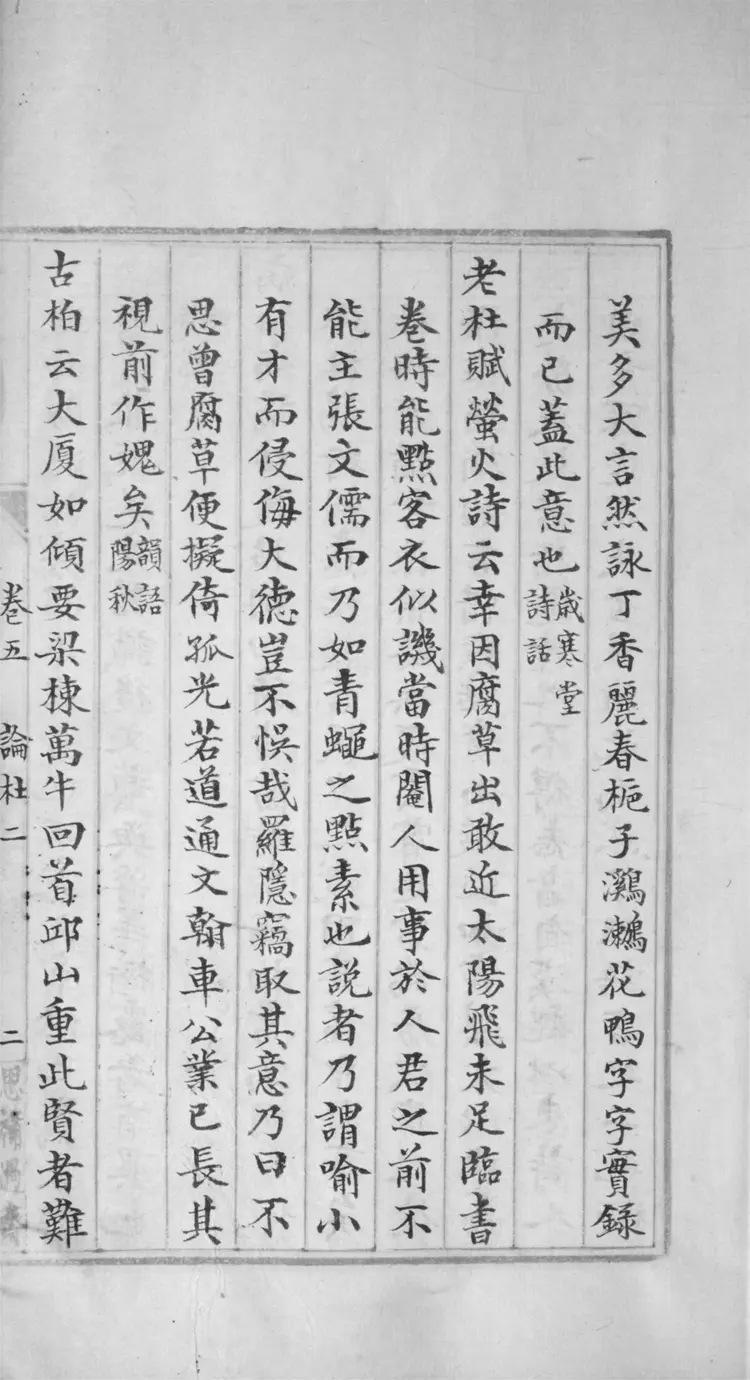 美多大言然詠丁香麗春梔子鸂鷘花鴨字字實錄
而已蓋此意也歲寒堂詩話
老杜賦螢火詩云幸因腐草出敢近太陽飛未足臨書
卷時能點客衣似譏當時閹人用事於人君之前不
能主張文儒而乃如青蠅之點素也説者乃謂喻小
有才而侵侮大德豈不悞哉羅隱竊取其意乃曰不
思曾腐草便擬倚孤光若道通文翰車公業已長其
視前作媿矣韻語陽秋
古柏云大厦如傾要梁棟萬牛回首邱山重此賢者難
卷五 論杜二 二